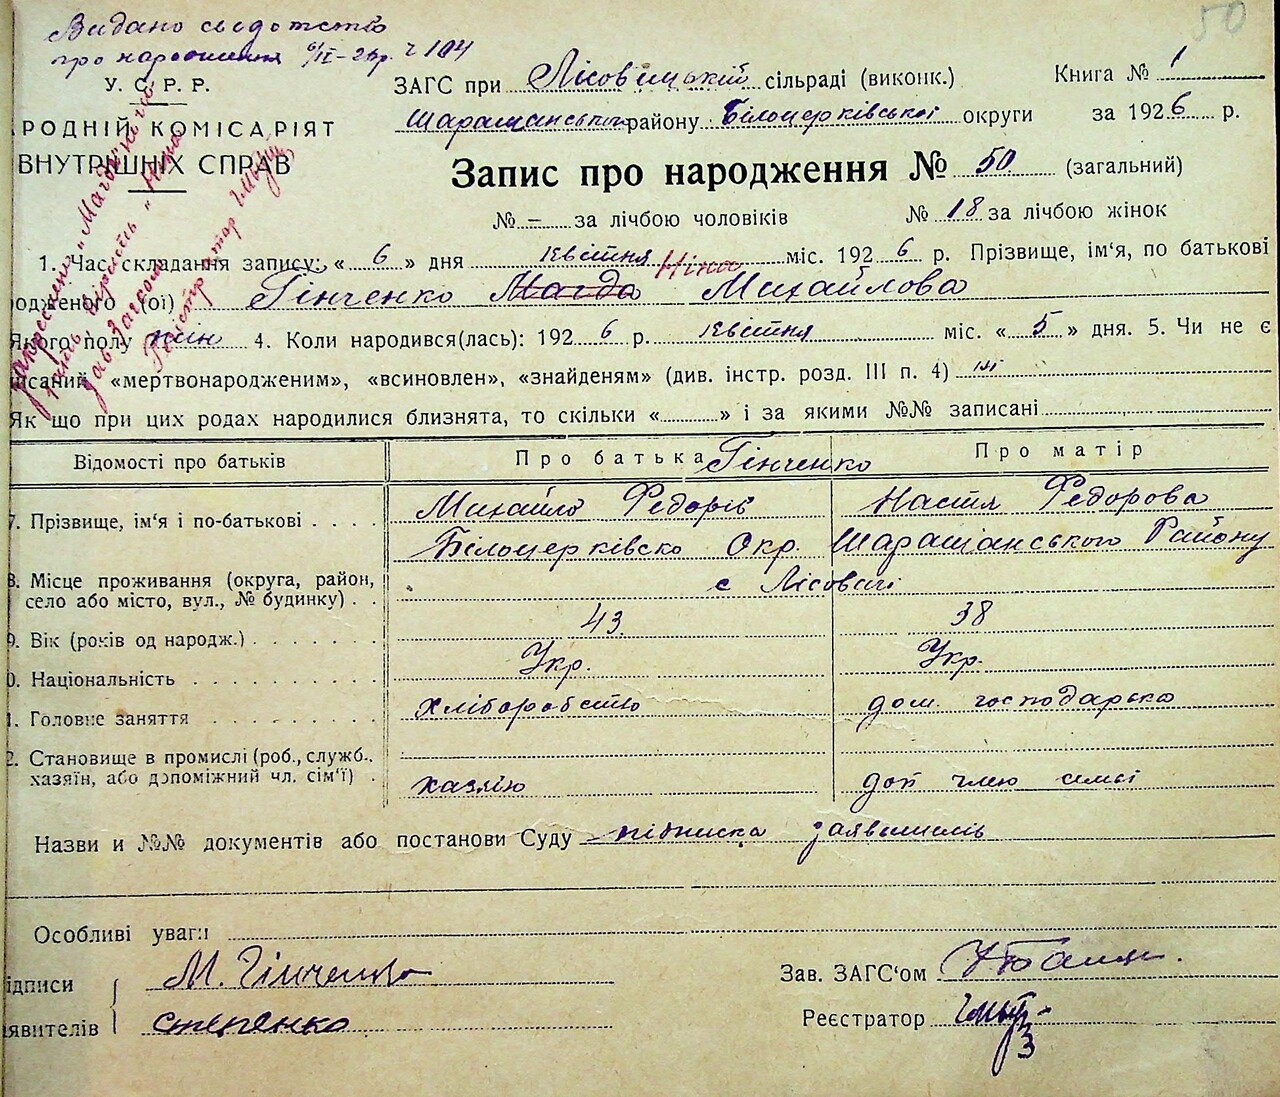 50
Видано свідотство
про народження 6/IV-26р. № 104
У. С. Р. Р.
РОДНІЙ КОМІСАРІЯТ
ВНУТРІШНІХ СПРАВ
ЗАГС при Лісовицький сільраді (виконк.)
Книга № 1
Таращанського району Білоцерківської округи за 1926 р.
Запис про народження № 50 (загальний)
№ – за лічбою чоловіків № 18 за лічбою жінок
закреслено „Магда"
„Ніна"
Зав. Загсом
Реєстратор
1. Час складання запису: « 6 » дня квітня міс. 1926 р. Прізвище, ім'я, по батькові
Ніна
родженого (ої) Гінченко Магда Михайлова
Якого полу жін 4. Коли народився(лась): 1926 р. квітня міс. « 5 » дня. 5. Чи не є
писаний «мертвонародженим», «всиновлен», «знайденям» (див. інстр. розд. III п. 4) ні
Як що при цих родах народилися близнята, то скільки « » і за якими №№ записані
Відомості про батьків Про батька Про матір
Гінченко
7. Прізвище, ім'я і по-батькові Михайло Федорів Настя Федорова
Білоцерківско Окр. Таращанського Району
8. Місце проживання (округа, район,
село або місто, вул., № будинку) с Лісовичі
9. Вік (років од народж.) 43 38
0. Національність Укр. Укр.
1. Головне заняття хліборобство дом. господарька
2. Становище в промислі (роб., служб.,
хазяїн, або допоміжний чл. сім'ї) хазяїн доп член сімьї
Назви и №№ документів або постанови Суду підписка заявителів
Особливі уваги
ідписи М. Гінченко
явителів Степенко
Зав. ЗАГС'ом
Реєстратор